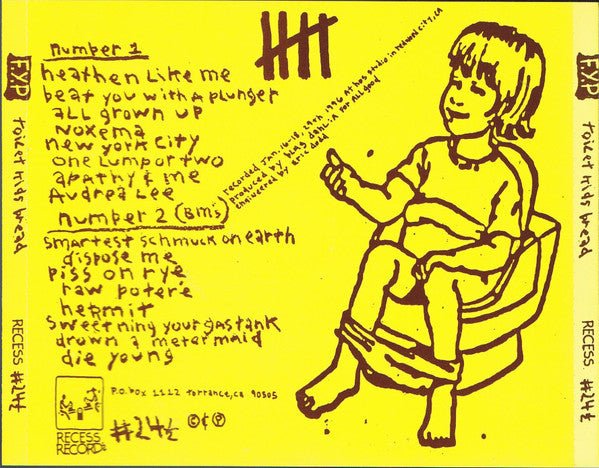 number 1
heathen Like me
beat you with A plunger
all grown up
Noxema
new york City
one Lump or two
apathy & me
Audrea Lee
number 2 (BM's)
smartest schmuck on earth
dispose me
piss on rye
raw poter'e
hermit
sweetning your gas tank
drown a meter maid
die young
recorded Jan. 16-18, 29th, 1996 At hos studio in redwood City, CA
produced by bLAg dahLiA for ALL good
engineered by eric dodd
FYP
toilet kids bread
RECESS #24½
FYP
toilet kids bread
RECESS #24½
RECESS RECORDS
P.O. box 1112 torrance, ca 90505
#24½ © & ℗